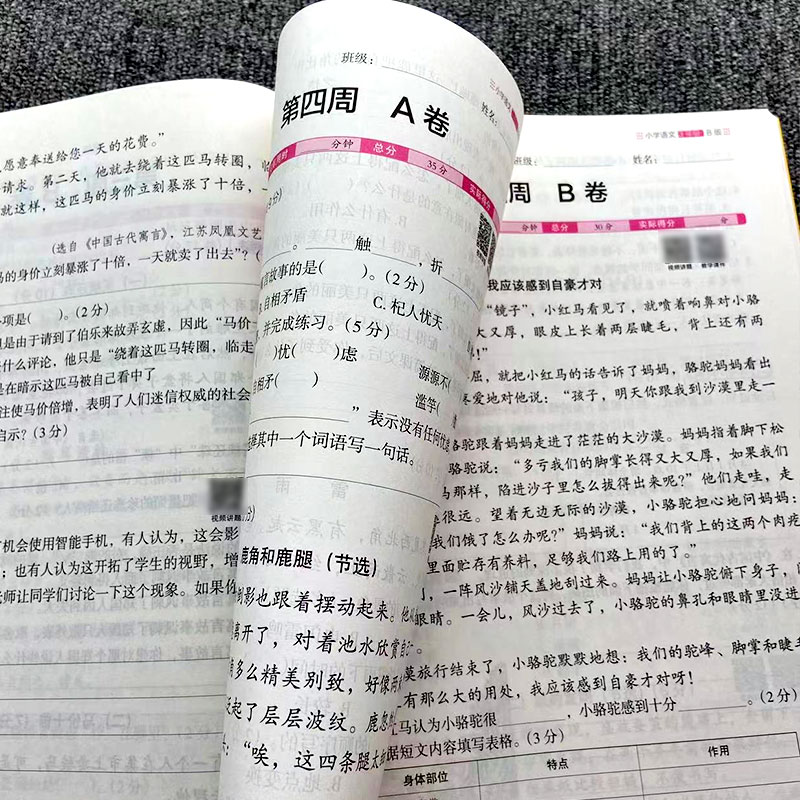 愿意奉送给您一天的花费。”
请求。第二天，他就去绕着这匹马转圈，
就这样，这匹马的身价立刻暴涨了十倍，一
（选自《中国古代寓言》，江苏凤凰文艺
马的身价立刻暴涨了十倍，一天就卖了出去”？（
项是（　　）。（2分）
是由于请到了伯乐来故弄玄虚，因此“马价一
什么评论，他只是“绕着这匹马转圈，临走
是在暗示这匹马被自己看中了
注使马价倍增，表明了人们迷信权威的社会
启示？（3分）
视频讲题
机会使用智能手机，有人认为，这会影
；也有人认为这开拓了学生的视野，增
师让同学们讨论一下这个现象。如果你
班级：
小学语文
第四周　A卷
姓名：
分钟　总分　35分　实际得分
触　　，折
故事的是（　　）。（2分）
自相矛盾　　C. 杞人忧天
，并完成练习。（5分）
）忧（　　）虑　　源源不（
自相矛（　　）　　滥竽（
”表示没有任何忧虑
选择其中一个词语写一句话。
鹿角和鹿腿（节选）
倒影也跟着摆动起来。他
离开了，对着池水欣赏自己
多么精美别致，好像两
起了层层波纹。鹿忽
：“唉，这四条腿太
小学语文　B版
班级：　　姓名：
周　B卷
分钟　总分　30分　实际得分　分
视频讲题　教学课件
我应该感到自豪才对
“镜子”，小红马看见了，就喷着响鼻对小骆
大又厚，眼皮上长着两层睫毛，背上还有两
！”
屈，就把小红马的话告诉了妈妈，骆驼妈妈看出
疼爱地对他说：“孩子，明天你跟我到沙漠里走一
骆驼跟着妈妈走进了茫茫的大沙漠。妈妈指着脚下松
骆驼说：“多亏我们的脚掌长得又大又厚，如果我们
马那样，陷进沙子里怎么拔得出来呢？”他们走哇，走
很远。望着无边无际的沙漠，小骆驼担心地问妈妈：
我们饿了怎么办呢？”妈妈说：“我们背上的这两个肉疙
里面贮存有养料，足够我们路上用的了。”
，一阵风沙铺天盖地刮过来。妈妈让小骆驼俯下身子，闭
眼睛。一会儿，风沙过去了，小骆驼的鼻孔和眼睛里没进
漠旅行结束了，小骆驼默默地想：我们的驼峰、脚掌和睫毛
有那么大的用处，我应该感到自豪才对呀！
马认为小骆驼很　　　　，小骆驼感到十分　　　　。（2分）
据短文内容填写表格。（3分）
身体部位　　特点　　作用